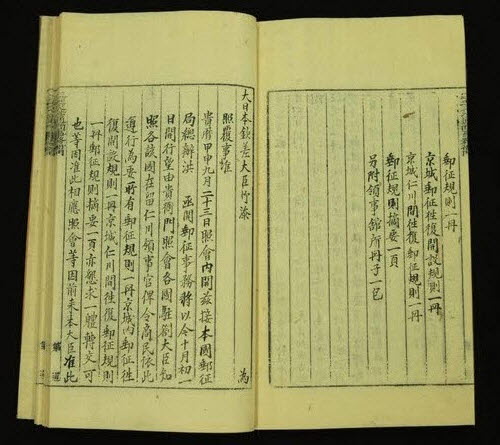 郵征規則一冊
京城郵征徃復開設規則一冊
京城仁川間徃復郵征規則一冊
郵征規則摘要一頁
另附領事舘所冊子一包
大日本欽差大臣竹添 爲
照覆事准
貴曆甲申九月二十三日照會內開玆接本國郵征
局總辦洪 函開郵征事務將以今十月初一
日開行望由貴衙門照會各國駐劄大臣知
照各該國在留仁川領事官俾令商民依此
遵行爲要所有郵征規則一冊京城內郵征徃
復開設規則一冊京城仁川間徃復郵征規則
一冊郵征規則摘要一頁亦懇求一體轉交可
也等因准此相應照會等因前來本大臣准此